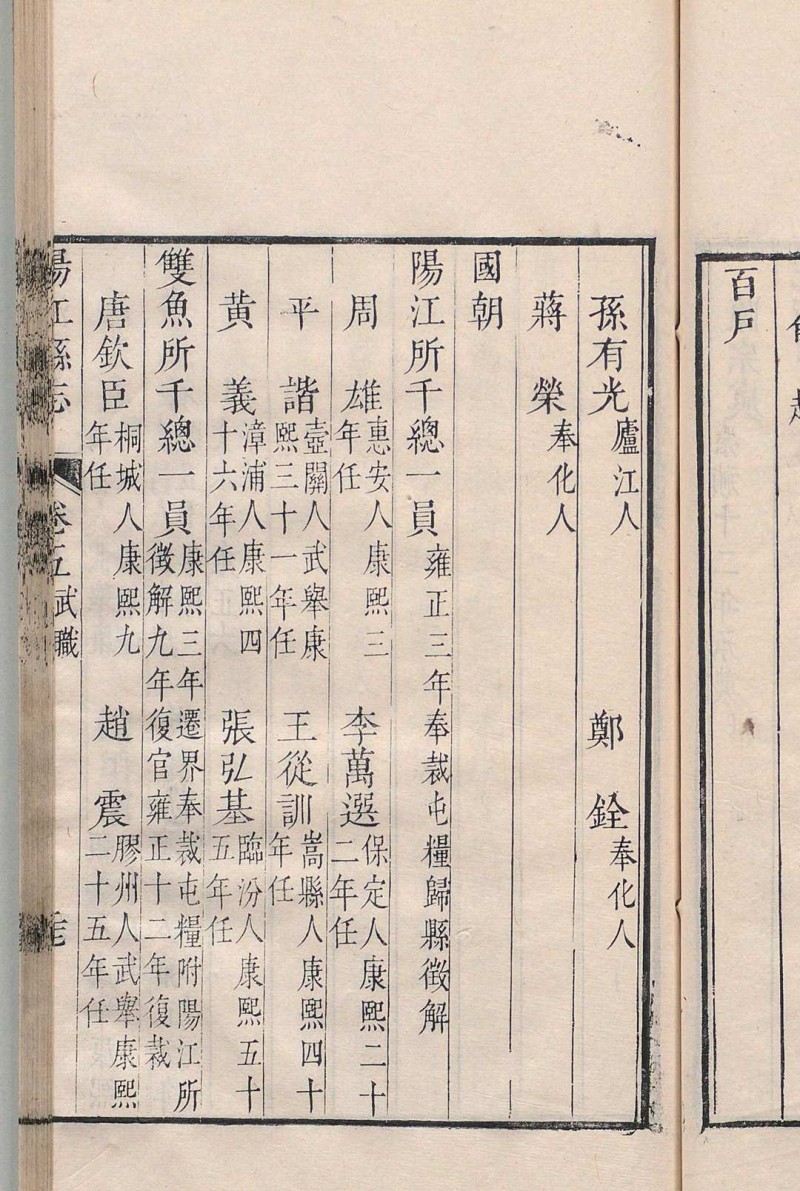 百戶
孫有光廬江人　鄭銓奉化人
蔣榮奉化人
國朝
陽江所千總一員雍正三年奉裁屯糧歸縣徵解
周雄惠安人康熙三年任　李萬選保定人康熙二十二年任
平諧壺關人武舉康熙三十一年任　王從訓嵩縣人康熙四十年任
黃義漳浦人康熙四十六年任　張弘基臨汾人康熙五十五年任
雙魚所千總一員康熙三年遷界奉裁屯糧附陽江所徵解九年復官雍正十二年復裁
唐欽臣桐城人康熙九年任　趙震膠州人武舉康熙二十五年任
陽江縣志　卷五武職